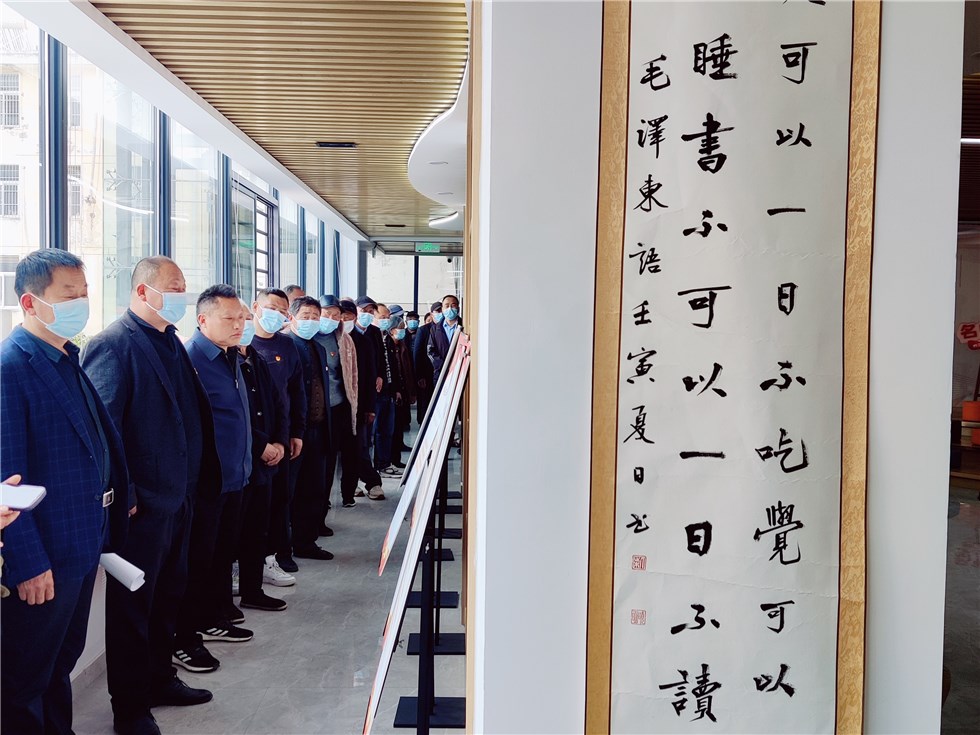 可以一日不吃覺可以
睡書不可以一日不讀
毛澤東語壬寅夏日书
名